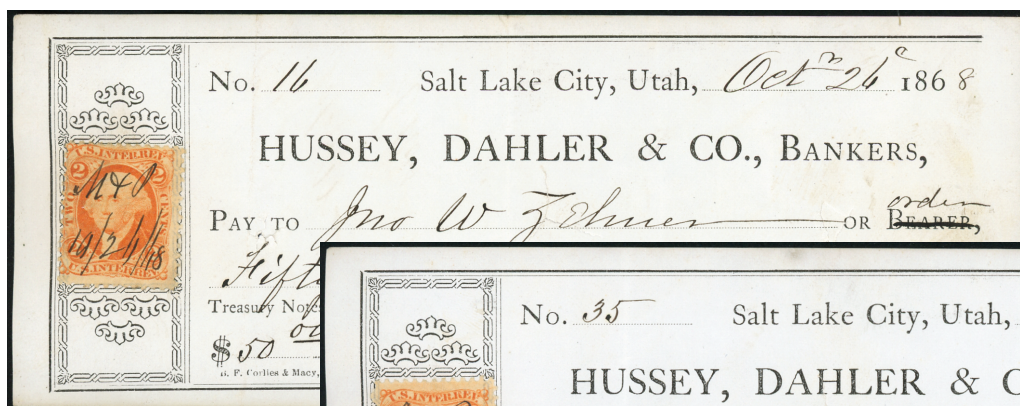 No. 16 Salt Lake City, Utah, Oct 26 1868
HUSSEY, DAHLER & CO., BANKERS,
order
PAY TO Jno W Zehner OR BEARER,
Treasury Note
$ 50 00
B. F. Corlies & Macy,
U.S. INTER. REV.
2 2
TWO CENTS
U.S. INTER. REV.
No. 35 Salt Lake City, Utah,
HUSSEY, DAHLER & C
U.S. INTER. REV.